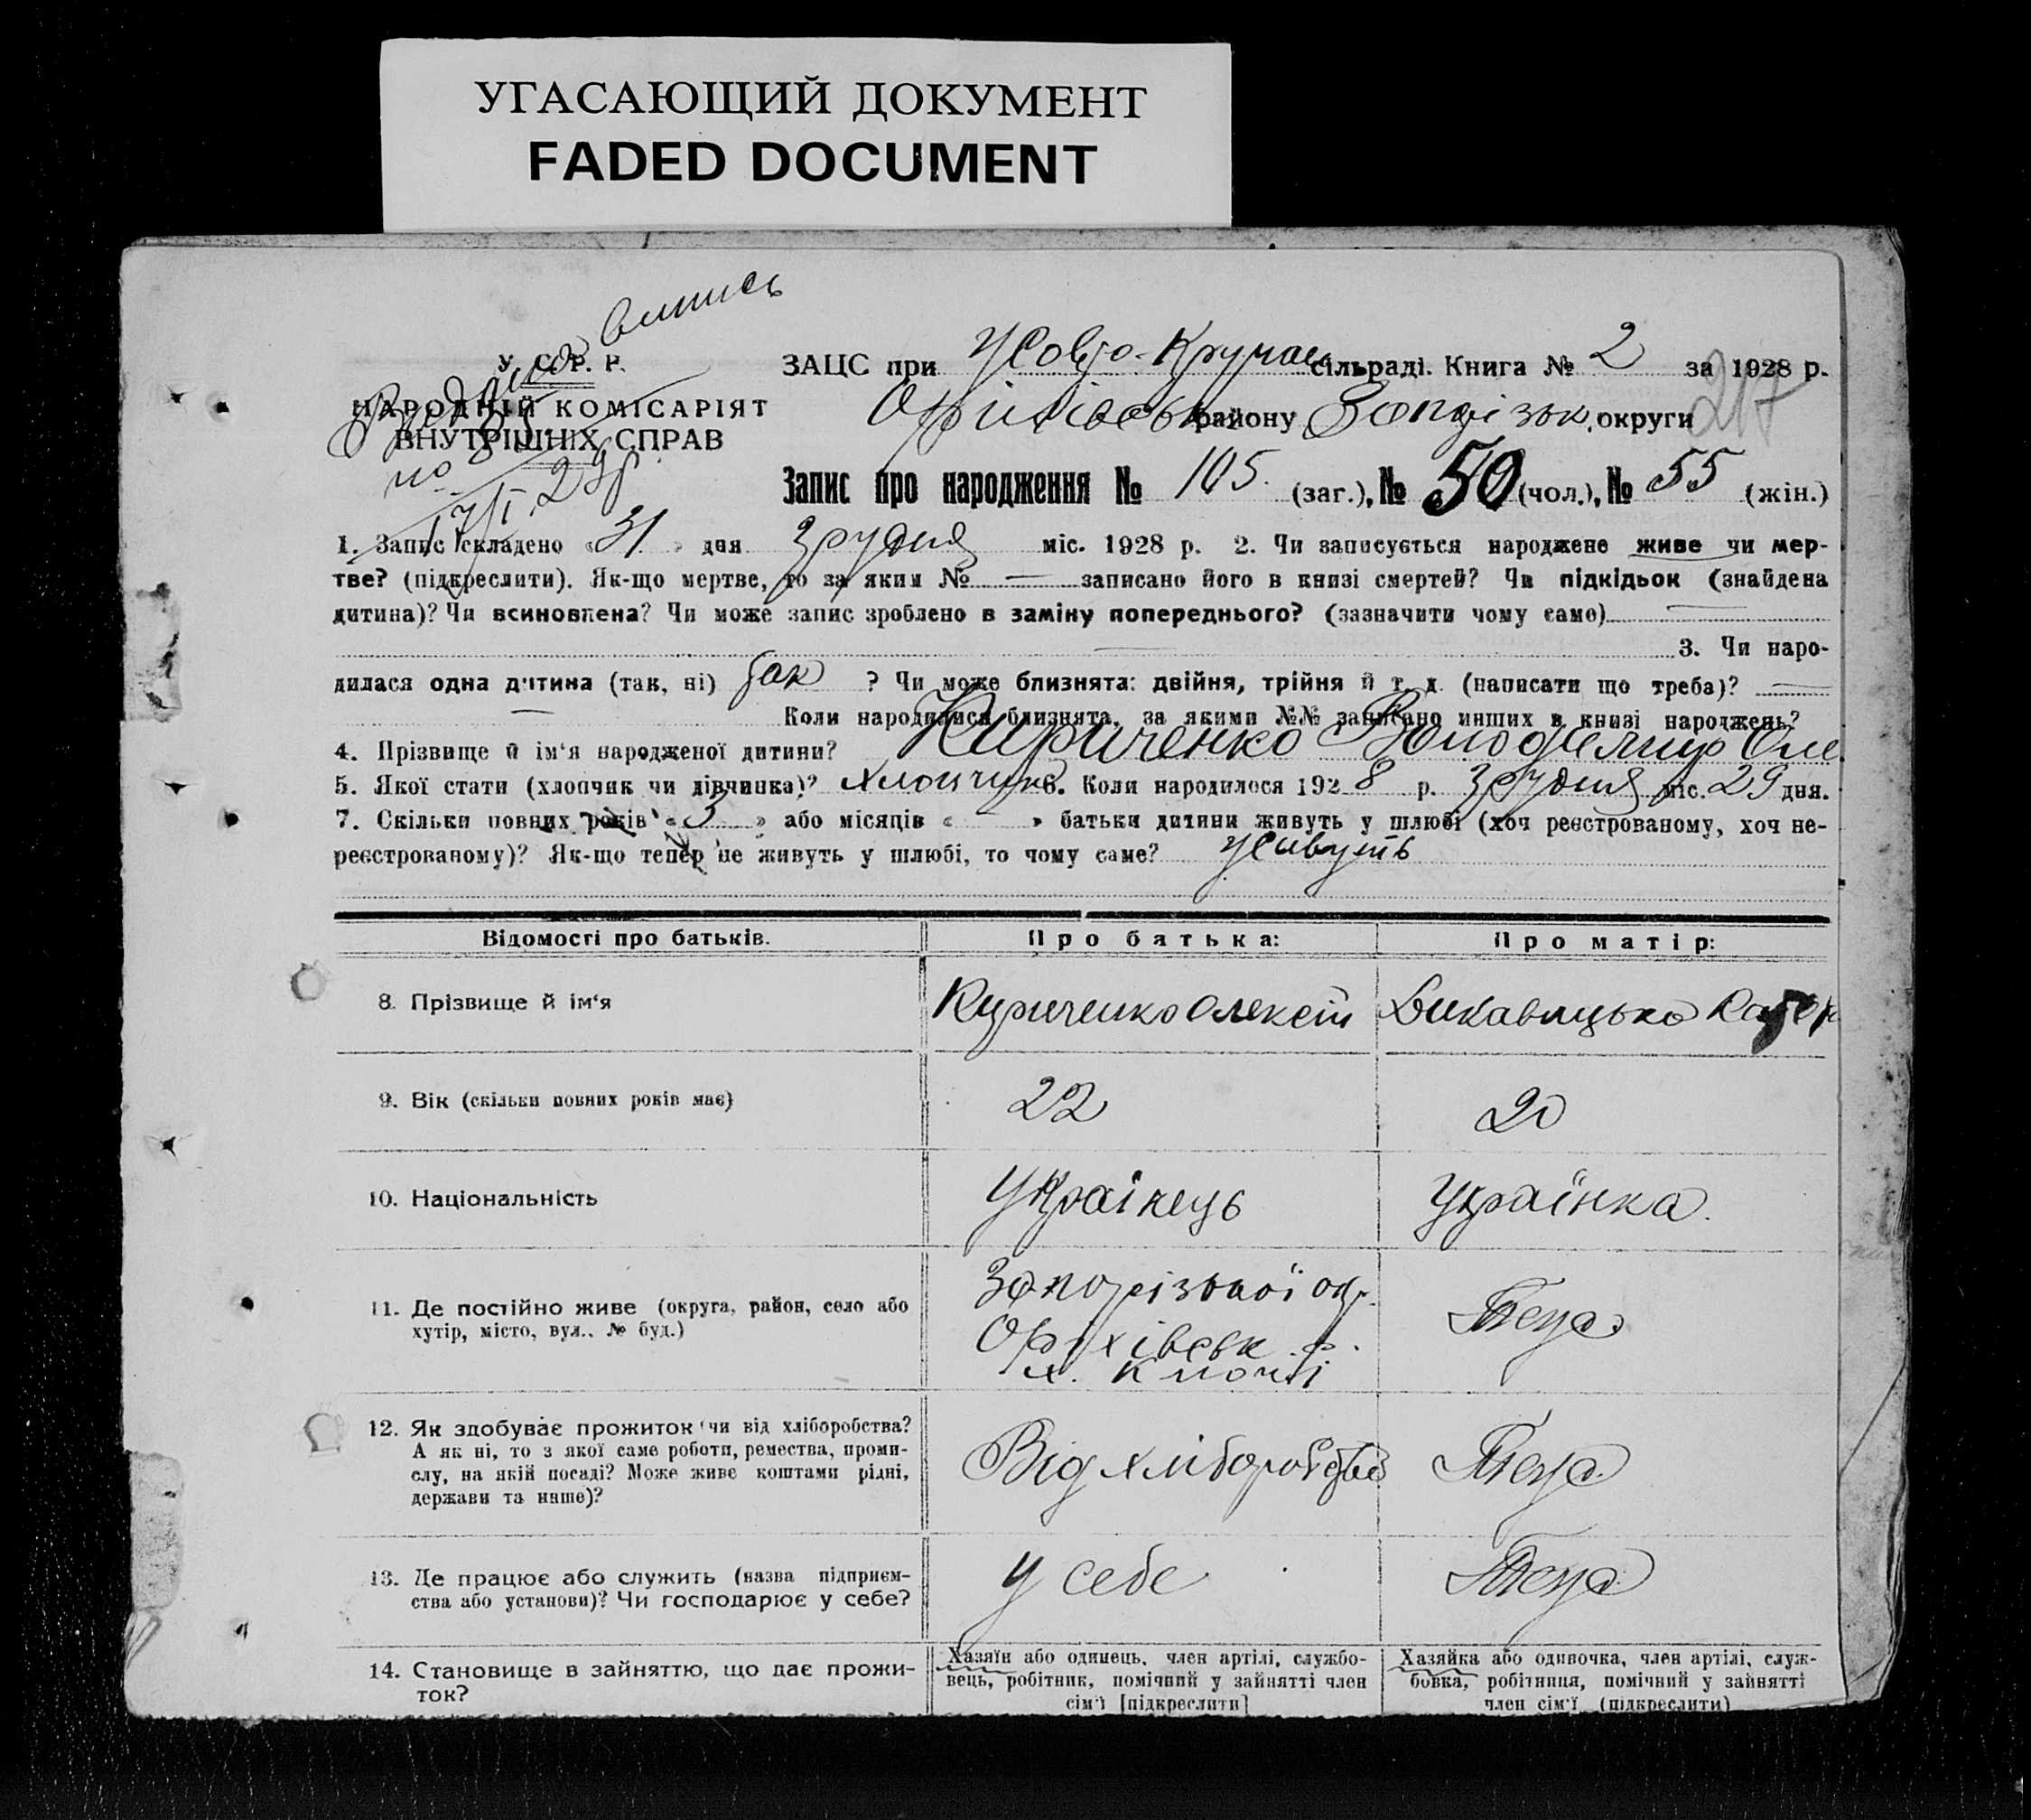 УГАСАЮЩИЙ ДОКУМЕНТ
FADED DOCUMENT
Видана виписъ
У. С. Р. Р.
НАРОДНІЙ КОМІСАРІЯТ
ВНУТРІШНІХ СПРАВ
17/I 29р.
ЗАЦС при Жовто-Кручан сільраді. Книга № 2 за 1928 р.
Оріхівськ району Запорізьк. округи 217
Запис про народження № 105. (заг.), № 50 (чол.), № 55 (жін.)
1. Запис складено «31» дня грудня міс. 1928 р. 2. Чи записується народжене живе чи мер-
тве? (підкреслити). Як-що мертве, то за яким № — записано його в книзі смертей? Чи підкідьок (знайдена
дитина)? Чи всиновлена? Чи може запис зроблено в заміну попереднього? (зазначити чому саме) —
— 3. Чи наро-
дилася одна дитина (так, ні) так ? Чи може близнята: двійня, трійня й т. д. (написати що треба)? —
— Коли народилися близнята, за якими №№ записано инших в книзі народжень?
4. Прізвище й ім'я народженої дитини? Кириченко Володимир Оле
5. Якої стати (хлопчик чи дівчинка)? хлопчик 6. Коли народилося 1928 р. грудня міс. 29 дня.
7. Скільки повних років «3» або місяців « » батьки дитини живуть у шлюбі (хоч реєстрованому, хоч не-
реєстрованому)? Як-що тепер не живуть у шлюбі, то чому саме? живуть
Відомості про батьків. Про батька: Про матір:
8. Прізвище й ім'я Кириченко Олексій
9. Вік (скільки повних років має) 22 20
10. Національність Українець Українка.
11. Де постійно живе (округа, район, село або
хутір, місто, вул., № буд.) Запорізької окр.
Оріхівськ. р.
х. Ключі
Теж
12. Як здобуває прожиток чи від хліборобства?
А як ні, то з якої саме роботи, ремества, проми-
слу, на якій посаді? Може живе коштами рідні,
держави та инше)? Від хліборобства Теж
13. Де працює або служить (назва підприєм-
ства або установи)? Чи господарює у себе? у себе Теж
14. Становище в зайняттю, що дає прожи-
ток?
Хазяїн або одинець, член артілі, службо-
вець, робітник, помічний у зайнятті член
сім'ї [підкреслити]
Хазяйка або одиночка, член артілі, служ-
бовка, робітниця, помічний у зайнятті
член сім'ї (підкреслити)